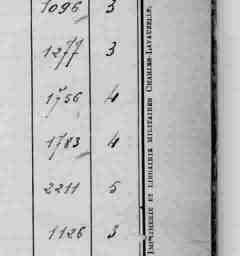 1096 3
1277 3
1756 4
1783 4
2211 5
1126 3
IMPRIMERIE ET LIBRAIRIE MILITAIRES CHARLES-LAVAUZELLE.